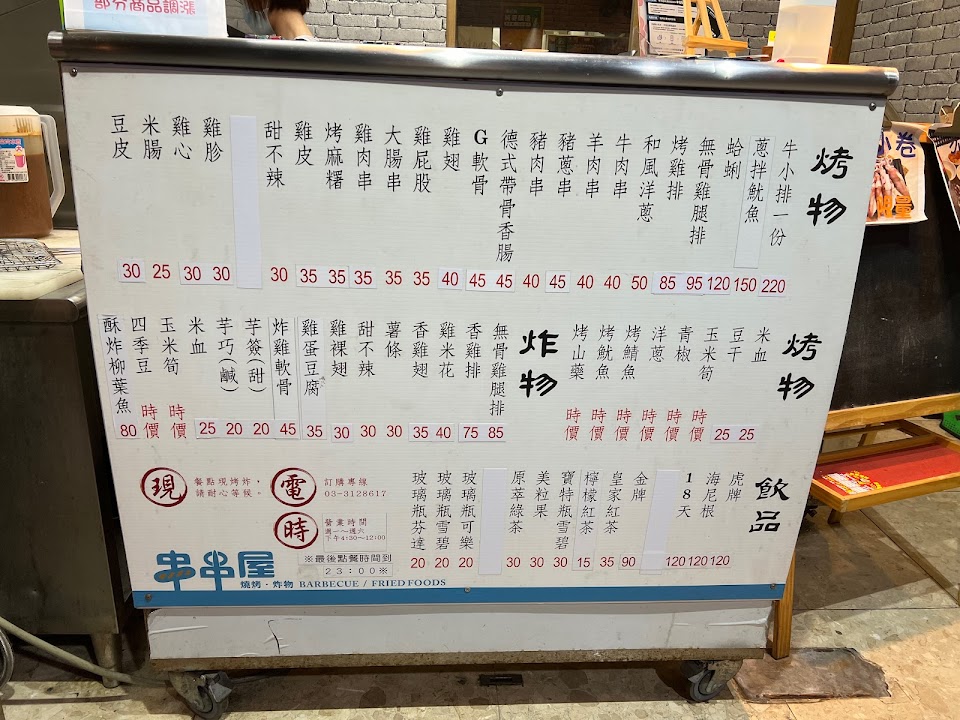 部分商品調漲
烤物
牛小排一份 220
蔥拌魷魚 150
蛤蜊 120
無骨雞腿排 95
烤雞排 85
和風洋蔥 50
牛肉串 40
羊肉串 40
豬蔥串 45
豬肉串 40
德式帶骨香腸 45
G軟骨 45
雞翅 40
雞屁股 35
大腸串 35
雞肉串 35
烤麻糬 35
雞皮 35
甜不辣 30
雞胗 30
雞心 30
米腸 25
豆皮 30
烤物
米血 25
豆干 25
玉米筍 時價
青椒 時價
洋蔥 時價
烤鯖魚 時價
烤魷魚 時價
烤山藥 時價
炸物
無骨雞腿排 85
香雞排 75
雞米花 40
香雞翅 35
薯條 30
甜不辣 30
雞裸翅 30
雞蛋豆腐 35
炸雞軟骨 45
芋簽(甜) 20
芋巧(鹹) 20
米血 25
玉米筍 時價
四季豆 時價
酥炸柳葉魚 80
飲品
虎牌 120
海尼根 120
18天 120
金牌 90
皇家紅茶 35
檸檬紅茶 15
寶特瓶雪碧 30
美粒果 30
原萃綠茶 30
玻璃瓶可樂 20
玻璃瓶雪碧 20
玻璃瓶芬達 20
現
餐點現烤炸，
請耐心等候。
電
訂購專線
03-3128617
時
營業時間
週一~週六
下午4:30~12:00
※最後點餐時間到
23:00※
串串屋
燒烤·炸物 BARBECUE / FRIED FOODS
小卷